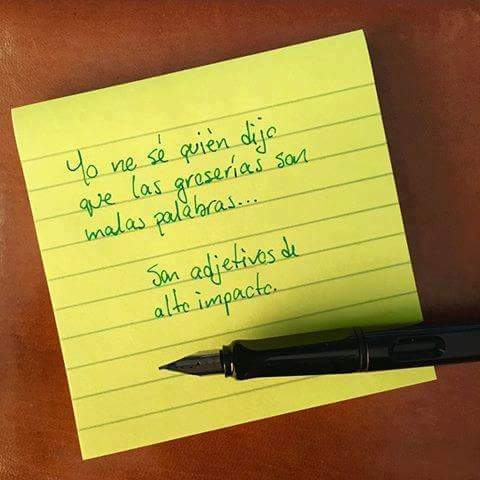 Yo no sé quién dijo
que las groserías son
malas palabras...
Son adjetivos de
alto impacto.